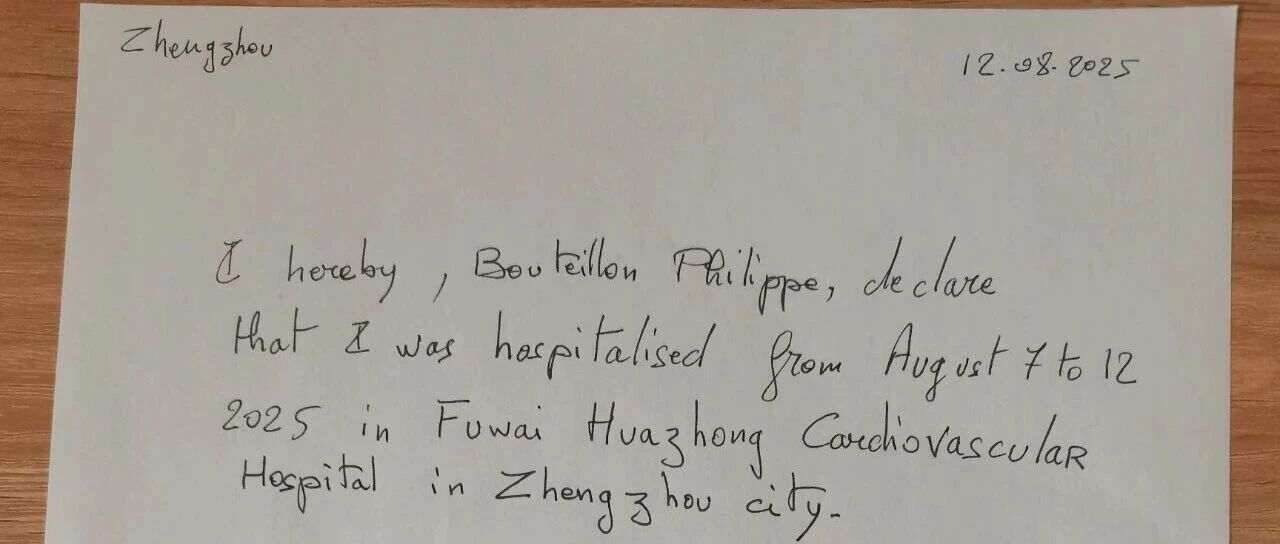 Zhengzhou
12.08.2025
I hereby, Bouteillon Philippe, declare
that I was hospitalised from August 7 to 12
2025 in Fuwai Huazhong Cardiovascular
Hospital in Zhengzhou city.